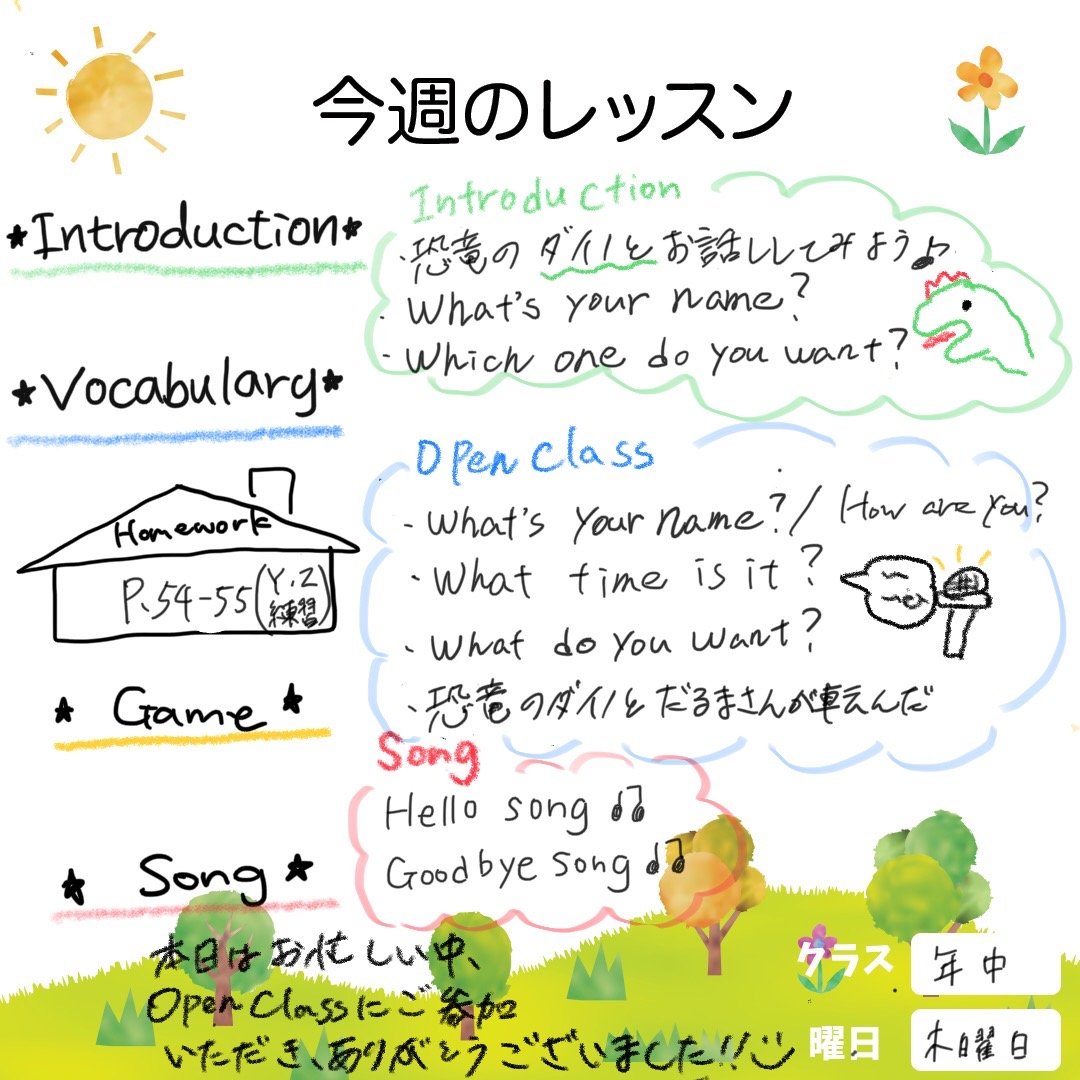 今週のレッスン
*Introduction*
Introduction
・恐竜の ダイノと お話ししてみよう♪
・What's your name?
・Which one do you want?
*Vocabulary*
Open Class
・What's your name? / How are you?
・What time is it?
・What do you want?
・恐竜のダイノと だるまさんが転んだ
Homework
P.54-55(Y.Z
練習)
* Game *
Song
Hello song ♫
Goodbye song ♫
* Song *
本日はお忙しい中、
Open Classにご参加
いただき、ありがとうございました!!
クラス 年中
曜日 木曜日